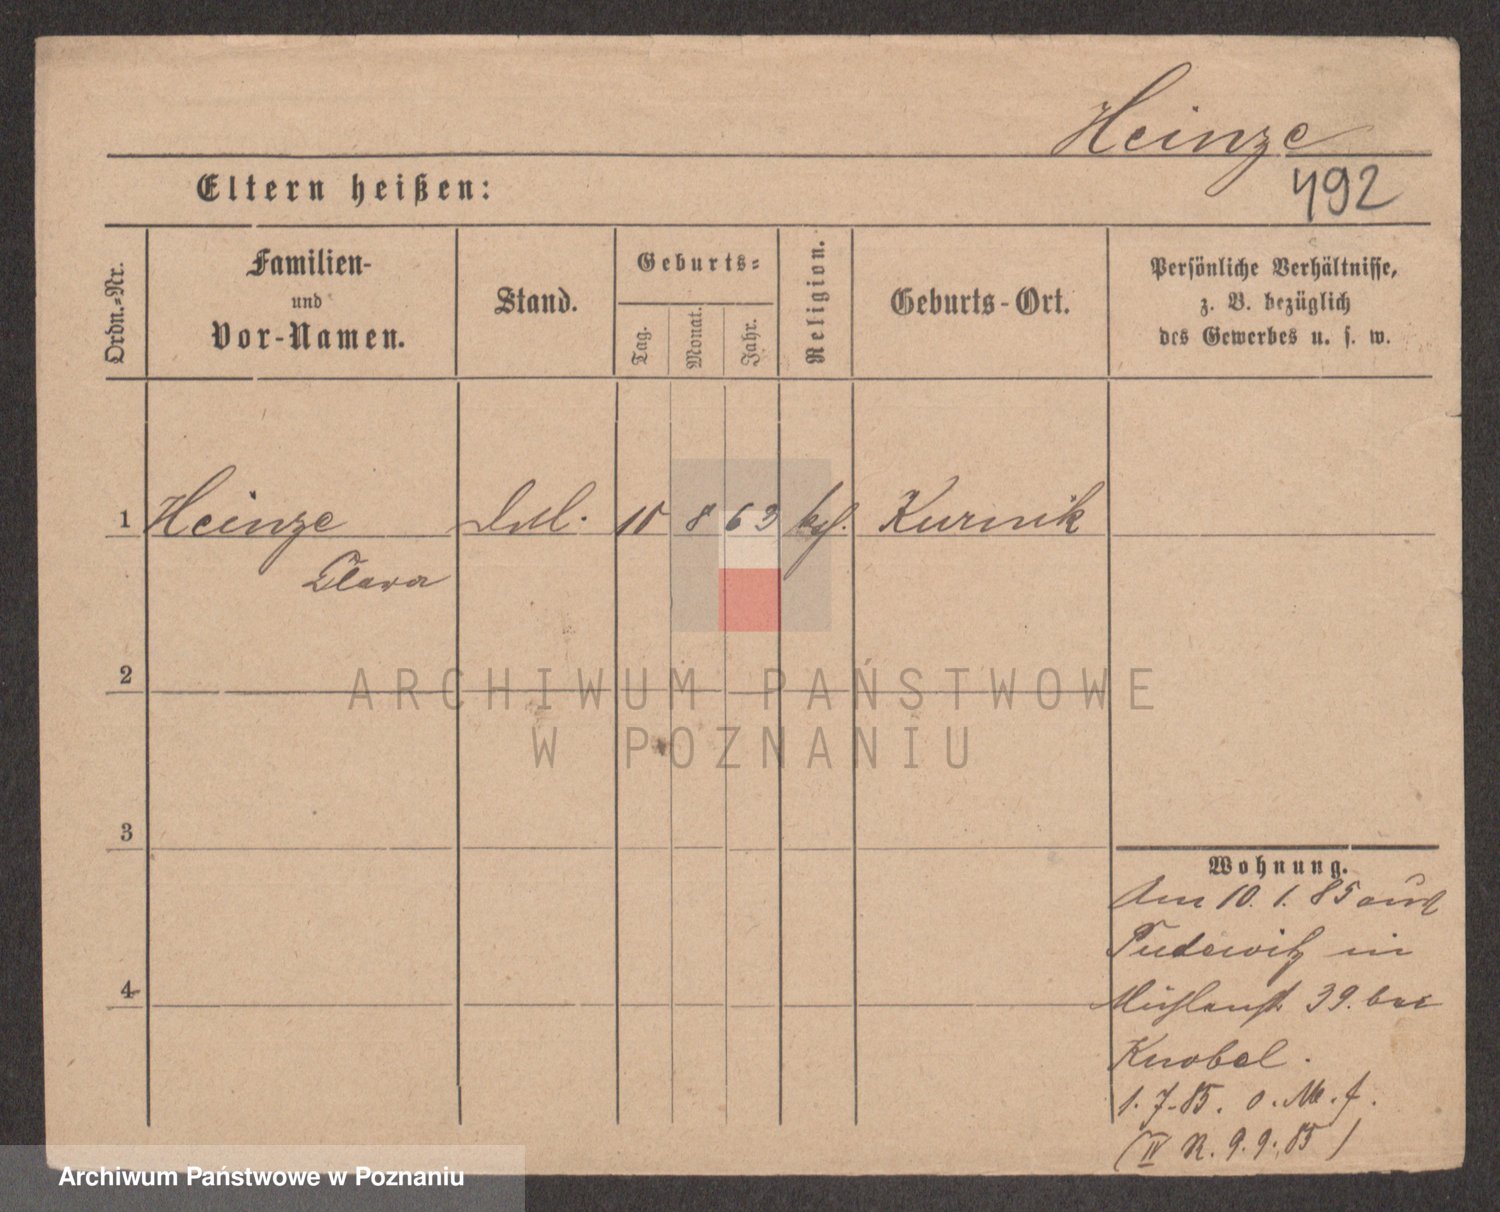 Heinze
492
Eltern heißen:
Ordn.-Nr.
Familien-
und
Vor-Namen.
Stand.
Geburts-
Tag.
Monat.
Jahr.
Religion.
Geburts-Ort.
Persönliche Verhältnisse,
z. B. bezüglich
des Gewerbes u. s. w.
1 Heinze 8 63 Kurnik
Clara
2
ARCHIWUM PAŃSTWOWE
W POZNANIU
3
Wohnung.
Am 10. 1. 85 aus
Pudewitz in
Mühlenst 39. bei
Knobel.
1. 7. 85. o. M. f.
(IV R. 9. 9. 85)
4
Archiwum Państwowe w Poznaniu